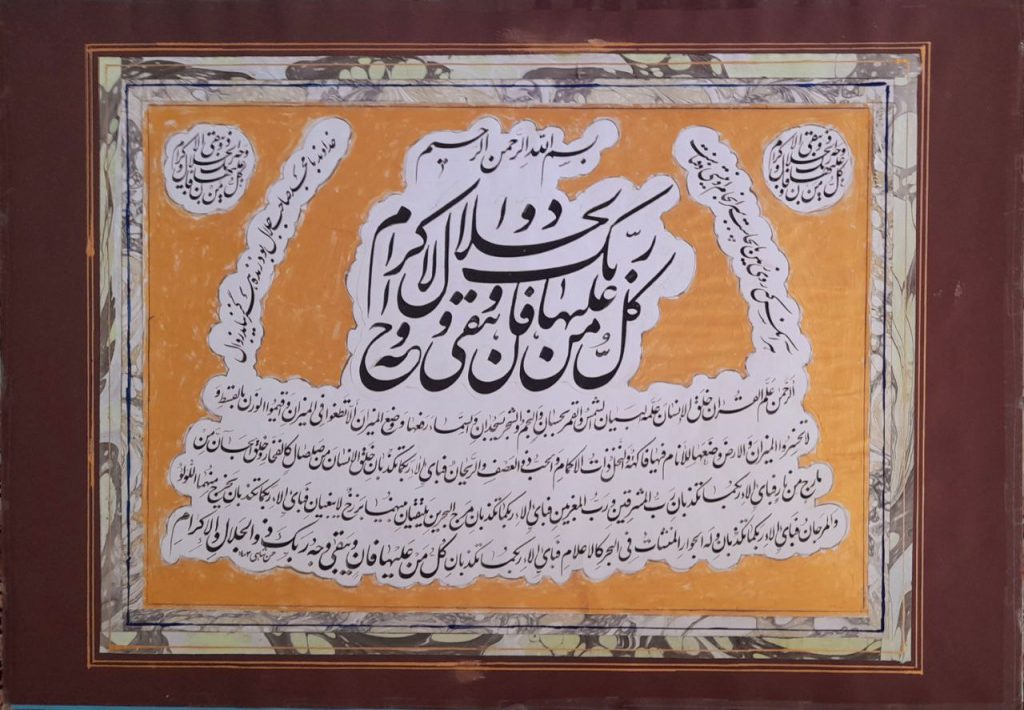 بسم الله الرحمن الرحيم
كل من عليها فان ويبقى وجه ربك ذو الجلال والاكرام
كل من عليها فان ويبقى وجه ربك ذو الجلال والاكرام
كل من عليها فان ويبقى وجه ربك ذو الجلال والاكرام
هر آنکس که روی زمین
خداوند صاحب جلال بود زنده
الرحمن علم القران خلق الانسان علمه البيان الشمس والقمر بحسبان والنجم والشجر يسجدان والسماء رفعها ووضع الميزان الا تطغوا في الميزان واقيموا الوزن بالقسط و
لا تخسروا الميزان والارض وضعها للانام فيها فاكهة والنخل ذات الاكمام والحب ذو العصف والريحان فباي الاء ربكما تكذبان خلق الانسان من صلصال كالفخار وخلق الجان من
مارج من نار فباي الاء ربكما تكذبان رب المشرقين ورب المغربين فباي الاء ربكما تكذبان مرج البحرين يلتقيان بينهما برزخ لا يبغيان فباي الاء ربكما تكذبان يخرج منهما اللؤلؤ
والمرجان فباي الاء ربكما تكذبان وله الجوار المنشئات في البحر كالاعلام فباي الاء ربكما تكذبان كل من عليها فان ويبقى وجه ربك ذو الجلال والاكرام